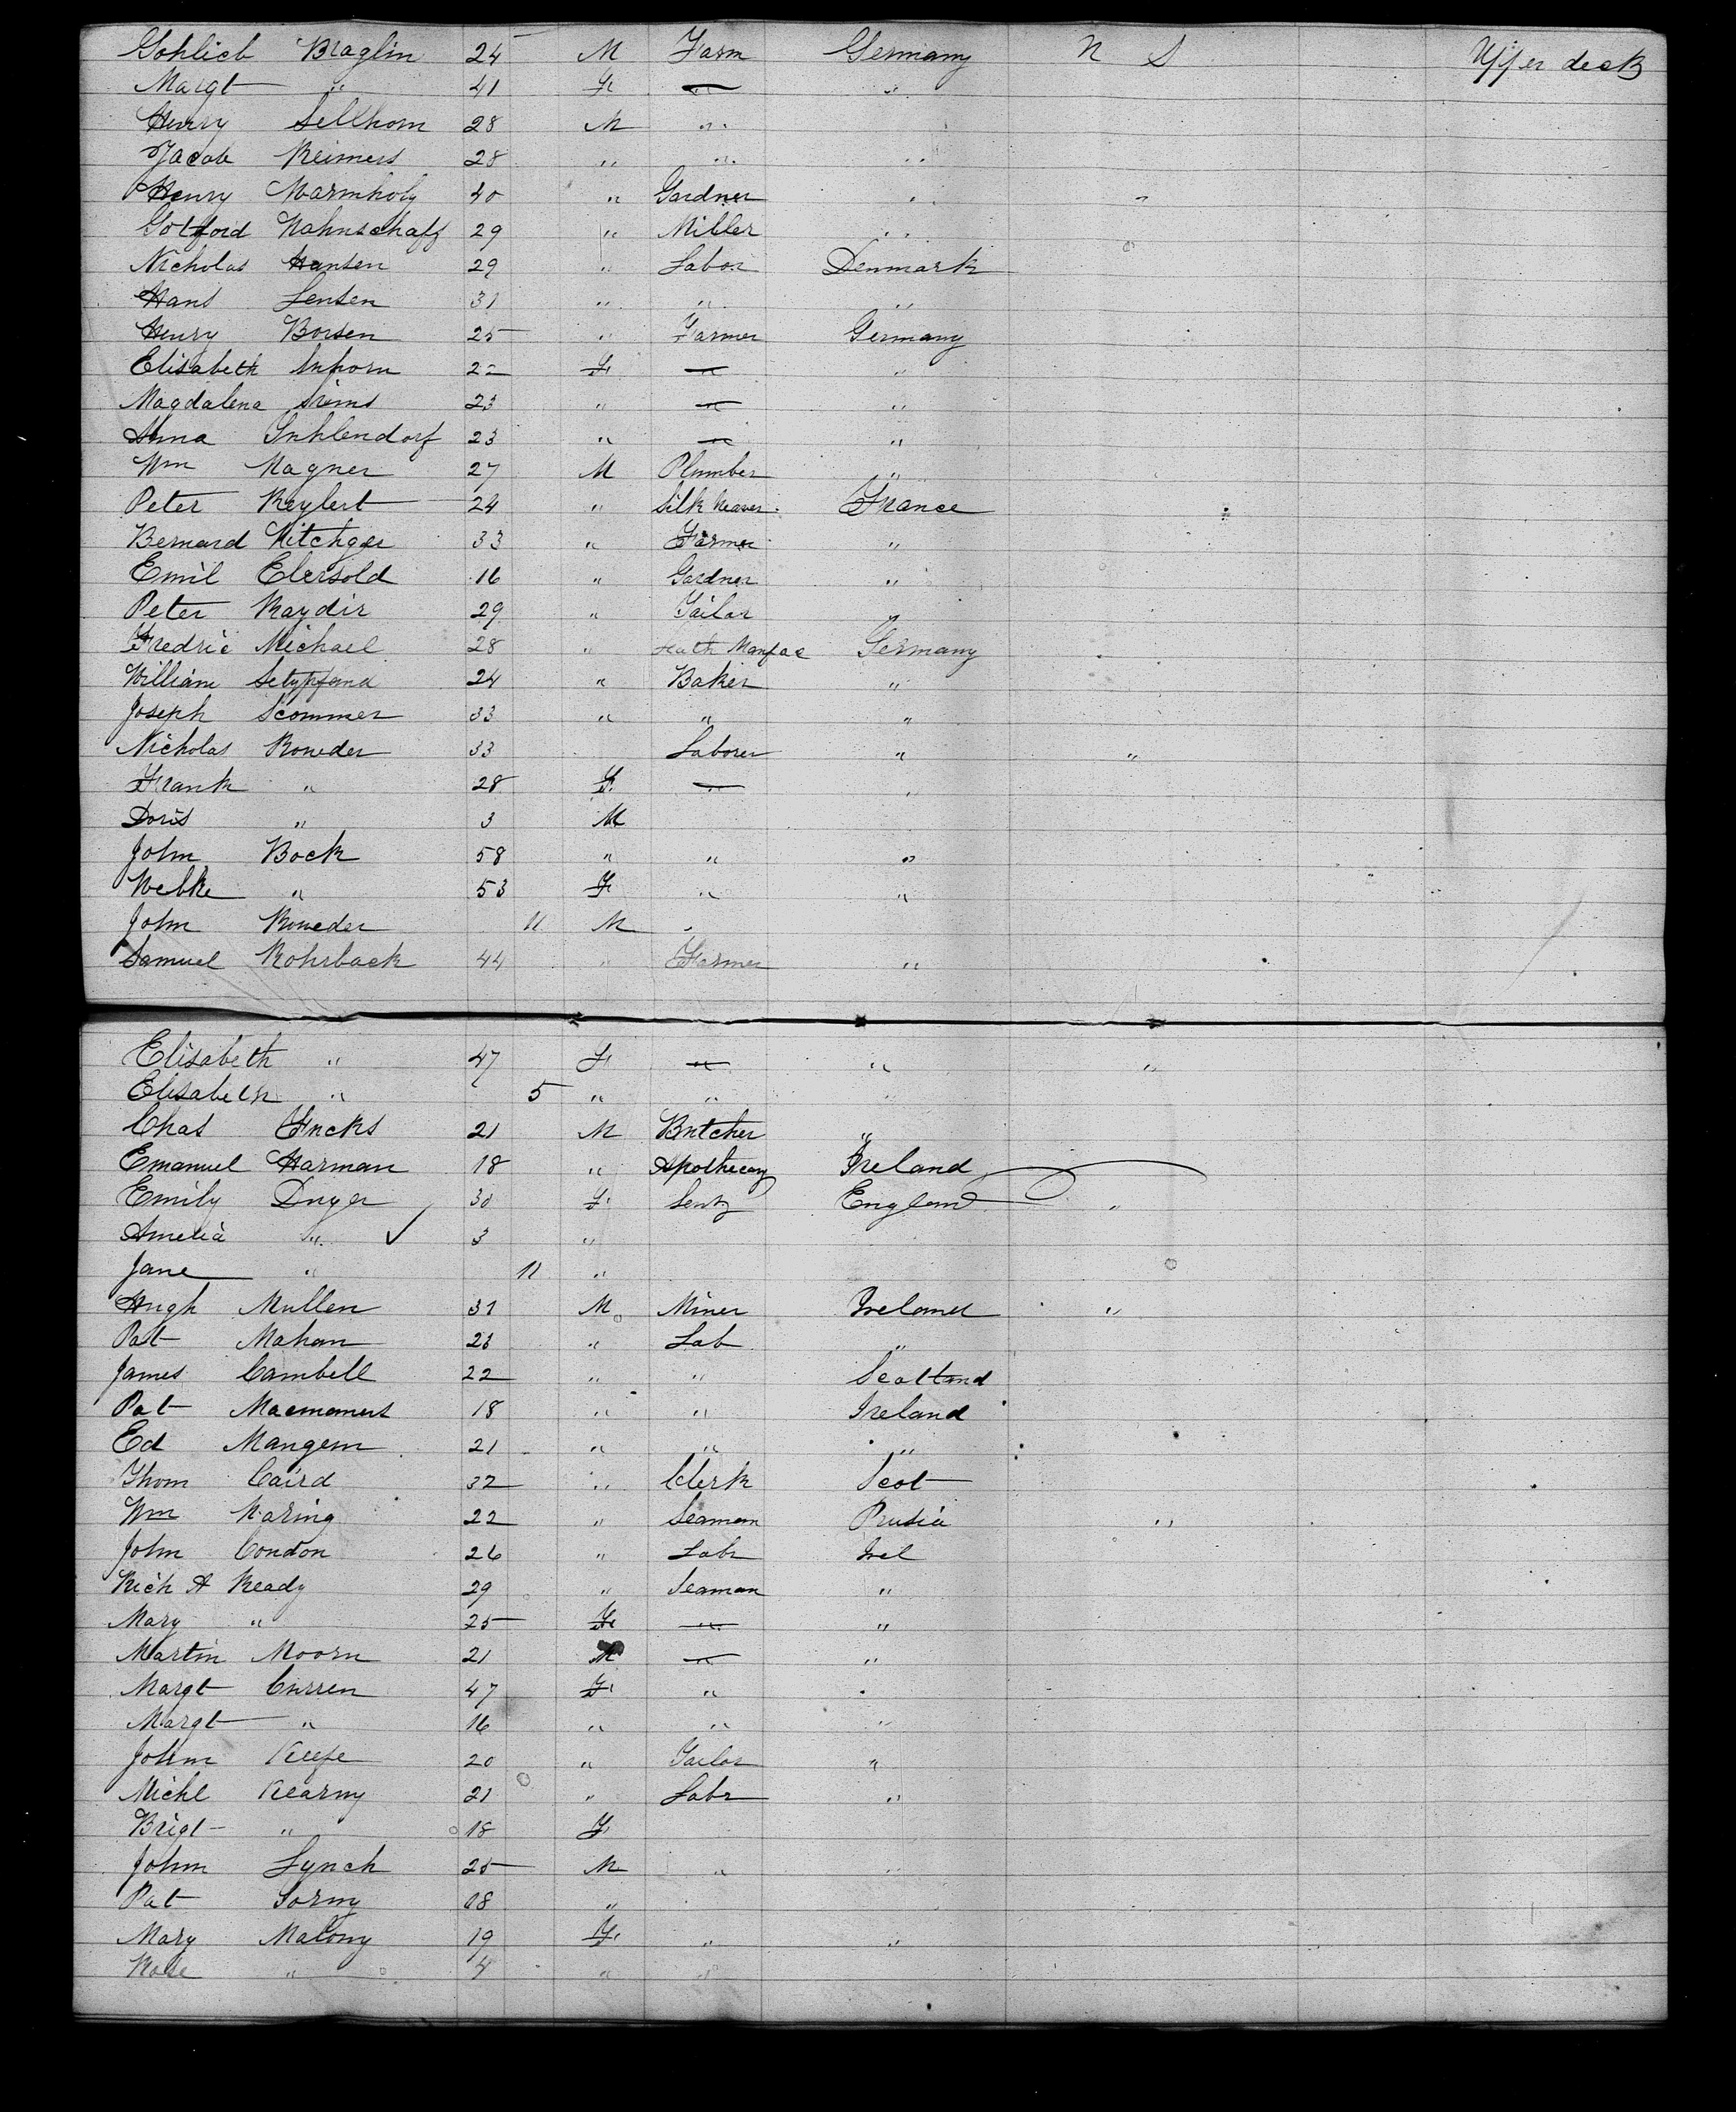 Gohlieb Braglin 24 M Farm Germany U S Upper deck
Margt " 41 F " "
Henry Sellhorn 28 M "
Jacob Reimers 28 " " "
Henry Warmholy 40 " Gardner "
Gotford Wahnschaff 29 " Miller "
Nicholas Hansen 29 " Labor Denmark
Hans Jensen 31 " " "
Henry Borsen 25 " Farmer Germany
Elisabeth Inhorn 22 F " "
Magdalena Srims 23 " " "
Anna Suhlendorf 23 " " "
Wm Wagner 27 M Plumber "
Peter Reylert 24 " Silk Weaver France
Bernard Witchger 33 " Farmer "
Emil Ebersold 16 " Gardner "
Peter Kaydir 29 " Tailor "
Fredric Michael 28 " Manfac Germany
William 24 " Baker "
Joseph Scommer 33 " " "
Nicholas Roweder 33 Laborer " "
Frank " 28 F " "
Doris " 3 M
John Bock 58 " " "
Webke " 53 F " "
John Roweder 11 M "
Samuel Rohrback 44 " Farmer "
Elisabeth " 47 F " " "
Elisabeth " 5 " "
Chas Fucks 21 M Butcher "
Emanuel Harman 18 " Apothecary Ireland
Emily Dwyer 30 F England "
Amelia " ✓ 3 "
Jane " 11 "
Hugh Mullen 31 M Miner Ireland "
Pat Mahan 23 " Lab "
James Cambell 22 " " Scotland
Pat Macmanus 18 " " Ireland
Ed Mangem 21 " " "
Thom Caird 32 " Clerk Scot
Wm Waring 22 " Seaman Prusia "
John Condon 26 " Labr Irel
Rich A Ready 29 " Seaman "
Mary " 25 F " "
Martin Moorn 21 M " "
Margt Curren 47 F "
Margt " 16 " " "
John Keefe 20 " Tailor "
Michl Kearny 21 " Labr "
Brigt " 18 F
John Lynch 25 M " "
Pat Torny 18 "
Mary Malony 19 F " "
Rose " 4 " "